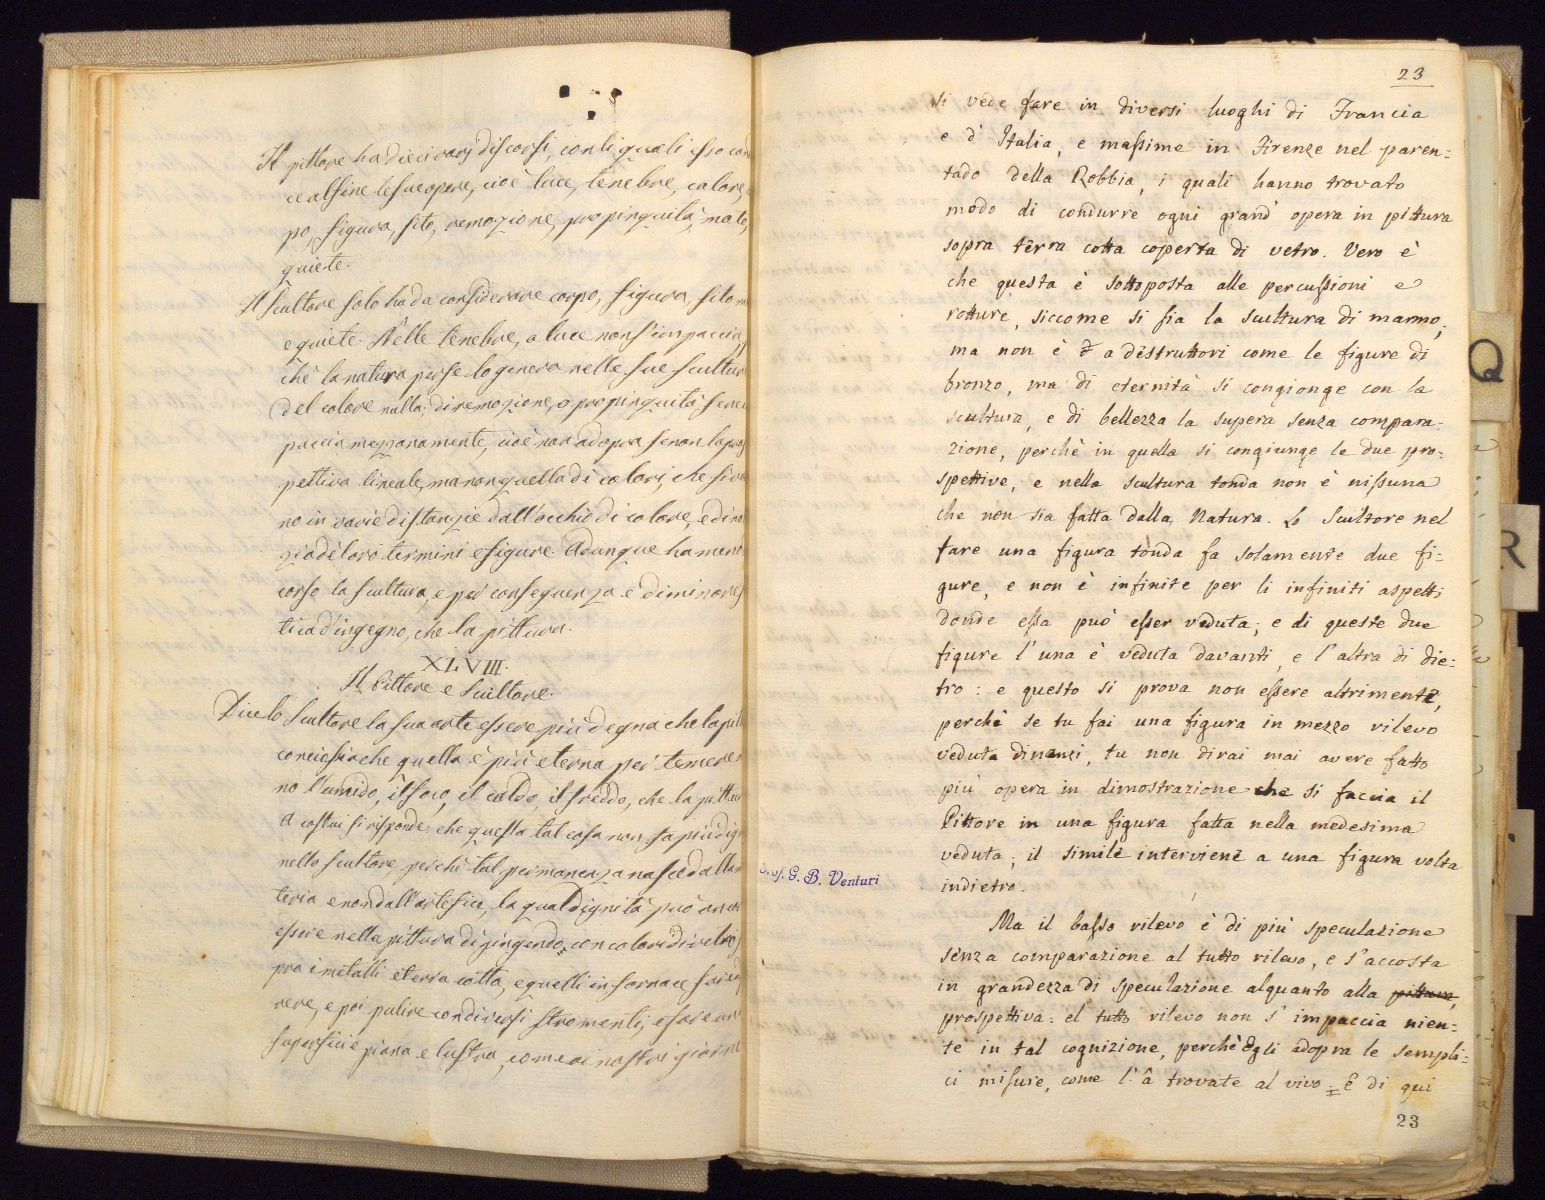 Il pittore ha dieci varj discorsi, con li quali esso
ce al fine le sue opere, cioè luce, tenebre, colore,
po, figura, sito, remozione, propinquità, moto,
quiete.
Il Scultore solo ha da considerare corpo, figura, sito
e quiete. Nelle tenebre, o luce non s'impaccia,
chè la natura per se lo genera nelle sue scultur
Del colore nulla; di remozione, o propinquità se ne
paccia mezzanamente, cioè non adopra se non la pros
pettiva lineale, ma non quella dè colori, che si va
no in varie distanzie dall'occhio di colore, e di no
zia dè loro termini e figure. Adunque ha meno
corso la scultura, e per conseguenza è di minore
tica d'ingegno, che la pittura.
XLVIII.
Il Pittore e Scultore.
Dice lo Scultore la sua arte essere più degna che la pit
conciosiache quella è più eterna per temere
no l'umido, il foco, il caldo, il freddo, che la pittur
A costui si risponde: che questa tal cosa non fa più dig
nello Scultore, perchè tal permanenza nasce dalla
teria e non dall'artefice, la qual dignità può ancor
essere nella pittura dipingendo con colori di vetro
pra i metalli e terra cotta, e quelli in fornace far
rere, e poi pulire con diversi stromenti, e fare una
superficie piana e lustra, come ai nostri giorni
23
si vede fare in diversi luoghi di Francia
e d' Italia, e massime in Firenze nel paren=
tado della Robbia, i quali hanno trovato
modo di condurre ogni grand' opera in pittura
sopra terra cotta coperta di vetro. Vero è
che questa è sottoposta alle percussioni e
rotture, siccome si sia la scultura di marmo;
ma non è a destruttori come le figure di
bronzo, ma di eternità si congionge con la
scultura, e di bellezza la supera senza compara=
zione, perchè in quella si congiunge le due pro=
spettive, e nella scultura tonda non è nissuna
che non sia fatta dalla Natura. Lo Scultore nel
fare una figura tonda fa solamente due fi=
gure, e non è infinite per li infiniti aspetti
donde essa può esser veduta; e di queste due
figure l'una è veduta davanti, e l'altra di die=
tro: e questo si prova non essere altrimente,
perchè se tu fai una figura in mezzo rilevo
veduta dinanzi, tu non dirai mai avere fatto
più opera in dimostrazione che si faccia il
Pittore in una figura fatta nella medesima
veduta; il simile interviene a una figura volta
indietro.
Prof. G. B. Venturi
Ma il basso rilevo è di più speculazione
senza comparazione al tutto rilevo, e s'accosta
in grandezza di speculazione alquanto alla pittura,
prospettiva: el tutto rilevo non s' impaccia nien=
te in tal cognizione, perchè egli adopra le sempli=
ci misure, come l'â trovate al vivo: È di qui
23
Q
R